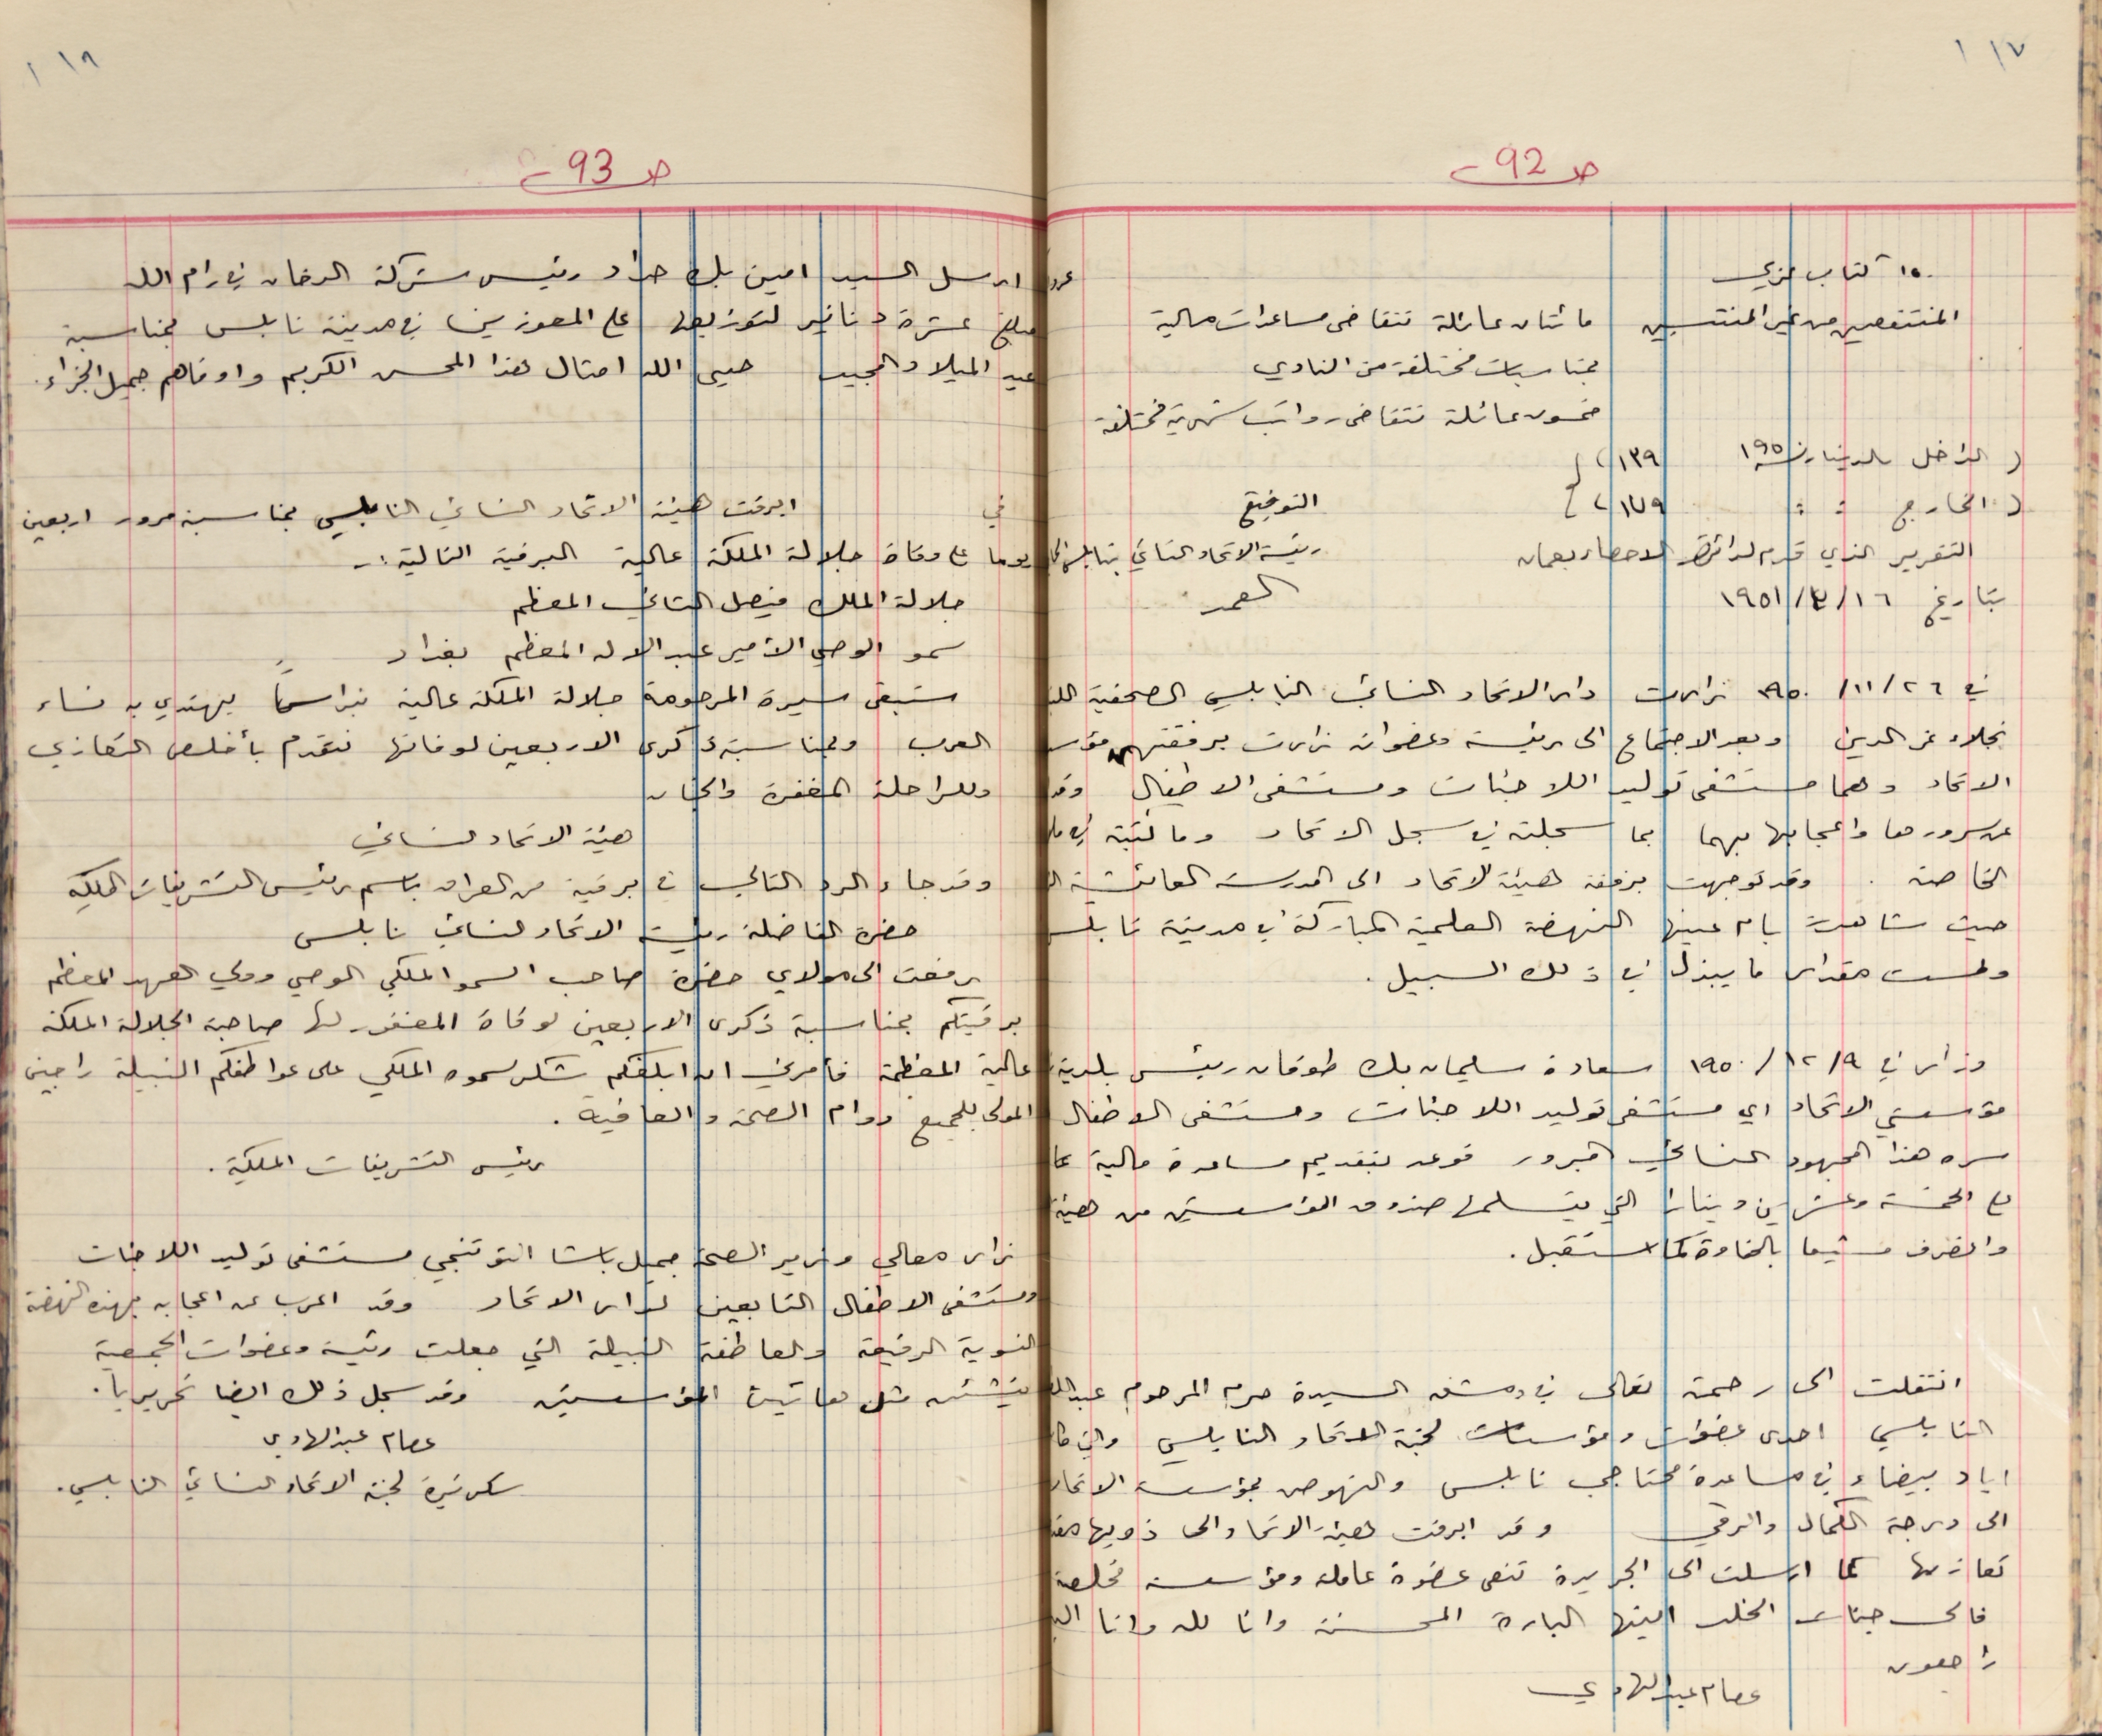 ١١٧
ص 92
١٥٠ كتاب
المنتفعين من غير المنتسبين مائتان عائلة تتقاضى مساعدات مالية
بمناسبات مختلفة من النادي
خمسون عائلة تتقاضى رواتب شهرية مختلفة
( الداخل بالدينار سنة ١٩٥٠ ١٣٩
( الخارج : : ١٧٩
التوقيع
التقرير الذي قدم لدائرة الاحصاء بعمان رئيسة الاتحاد النسائي بنابلس
بتاريخ ١٦/٣/١٩٥١
في ٢٦/١١/١٩٥٠ زارت دار الاتحاد النسائي النابلسي الصحفية
نجلاء عز الدين وبعد الاجتماع الى رئيسة وعضوات زارت برفقتهم
الاتحاد وهما مستشفى توليد اللاجئات ومستشفى الاطفال وقد
عن سرورها واعجابها بهما بما سجلته في سجل الاتحاد وما كتبته في
الخاصة . وقد توجهت برفقة هيئة الاتحاد الى المدرسة العائشية
حيث شاهدت بام عينها النهضة العلمية المباركة في مدينة نابلس
ولمست مقدار ما يبذل في ذلك السبيل .
وزار في ٩/١٢/١٩٥٠ سعادة سليمان بك طوقان رئيس بلدية
مؤسستي الاتحاد اي مستشفى توليد اللاجئات ومستشفى الاطفال
سره هذا المجهود النسائي المبرور فوعد بتقديم مساعدة مالية
الخمسة وعشرين دينارا التي يتسلمها صندوق المؤسستين من هيئة
وانصرف مشيعا بالحفاوة كما استقبل .
انتقلت الى رحمة تعالى في دمشق السيدة حرم المرحوم
النابلسي احدى عضوات ومؤسسات لجنة الاتحاد النابلسي والتي
اياد بيضاء في مساعدة محتاجي نابلس والنهوض بمؤسسة الاتحاد
الى درجة الكمال والرقي وقد ابرقت هيئة الاتحاد الى ذويها
تعازيها كما ارسلت الى الجريدة تنعى عضوة عاملة ومؤسسة مخلصة
فالى جنات الخلد ايتها البارة المحسنة وانا لله وانا
راجعون
عصام عبد الهادي
١١٨
ص 93
ارسل السيد امين بك حداد رئيس شركة الدخان في رام الله
مبلغ عشرة دنانير لتوزيعها على المعوزين في مدينة نابلس بمناسبة
عيد الميلاد المجيد حيى الله امثال هذا المحسن الكريم واوفاهم جميل الجزاء .
في ابرقت هيئة الاتحاد النسائي النابلسي بمناسبة مرور اربعين
يوما على وفاة جلالة الملكة عالية البرقية التالية :-
جلالة الملك فيصل الثاني المعظم
سمو الوصي الامير عبد الاله المعظم بغداد
ستبقى سيرة المرحومة جلالة الملكة عالية نبراسا يهتدي به نساء
العرب وبمناسبة ذكرى الاربعين لوفاتها نتقدم بأخلص التعازي
وللراحلة المغفرة والجنان
هيئة الاتحاد النسائي
وقد جاء الرد التالي في برقية من العراق باسم رئيس التشريفات الملكية
حضرة الفاضلة رئيسة الاتحاد النسائي نابلس
رفعت الى مولاي حضرة صاحب السمو الملكي الوصي وولي العهد المعظم
برقيتكم بمناسبة ذكرى الاربعين لوفاة المغفور لها صاحبة الجلالة الملكة
عالية المعظمة فأمرني ان ابلغكم شكر سموه الملكي على عواطفكم النبيلة راجين
المولى للجميع دوام الصحة والعافية .
رئيس التشريفات الملكية .
زار معالي وزير الصحة جميل باشا التوتنجي مستشفى توليد اللاجئات
ومستشفى الاطفال التابعين لدار الاتحاد وقد اعرب عن اعجابه بهذه النهضة
النسوية الرفيعة والعاطفة النبيلة التي جعلت رئيسة وعضوات الجمعية
ينشئن مثل هاتين المؤسستين وقد سجل ذلك ايضا تحريريا .
عصام عبد الهادي
سكرتيرة لجنة الاتحاد النسائي النابلسي .